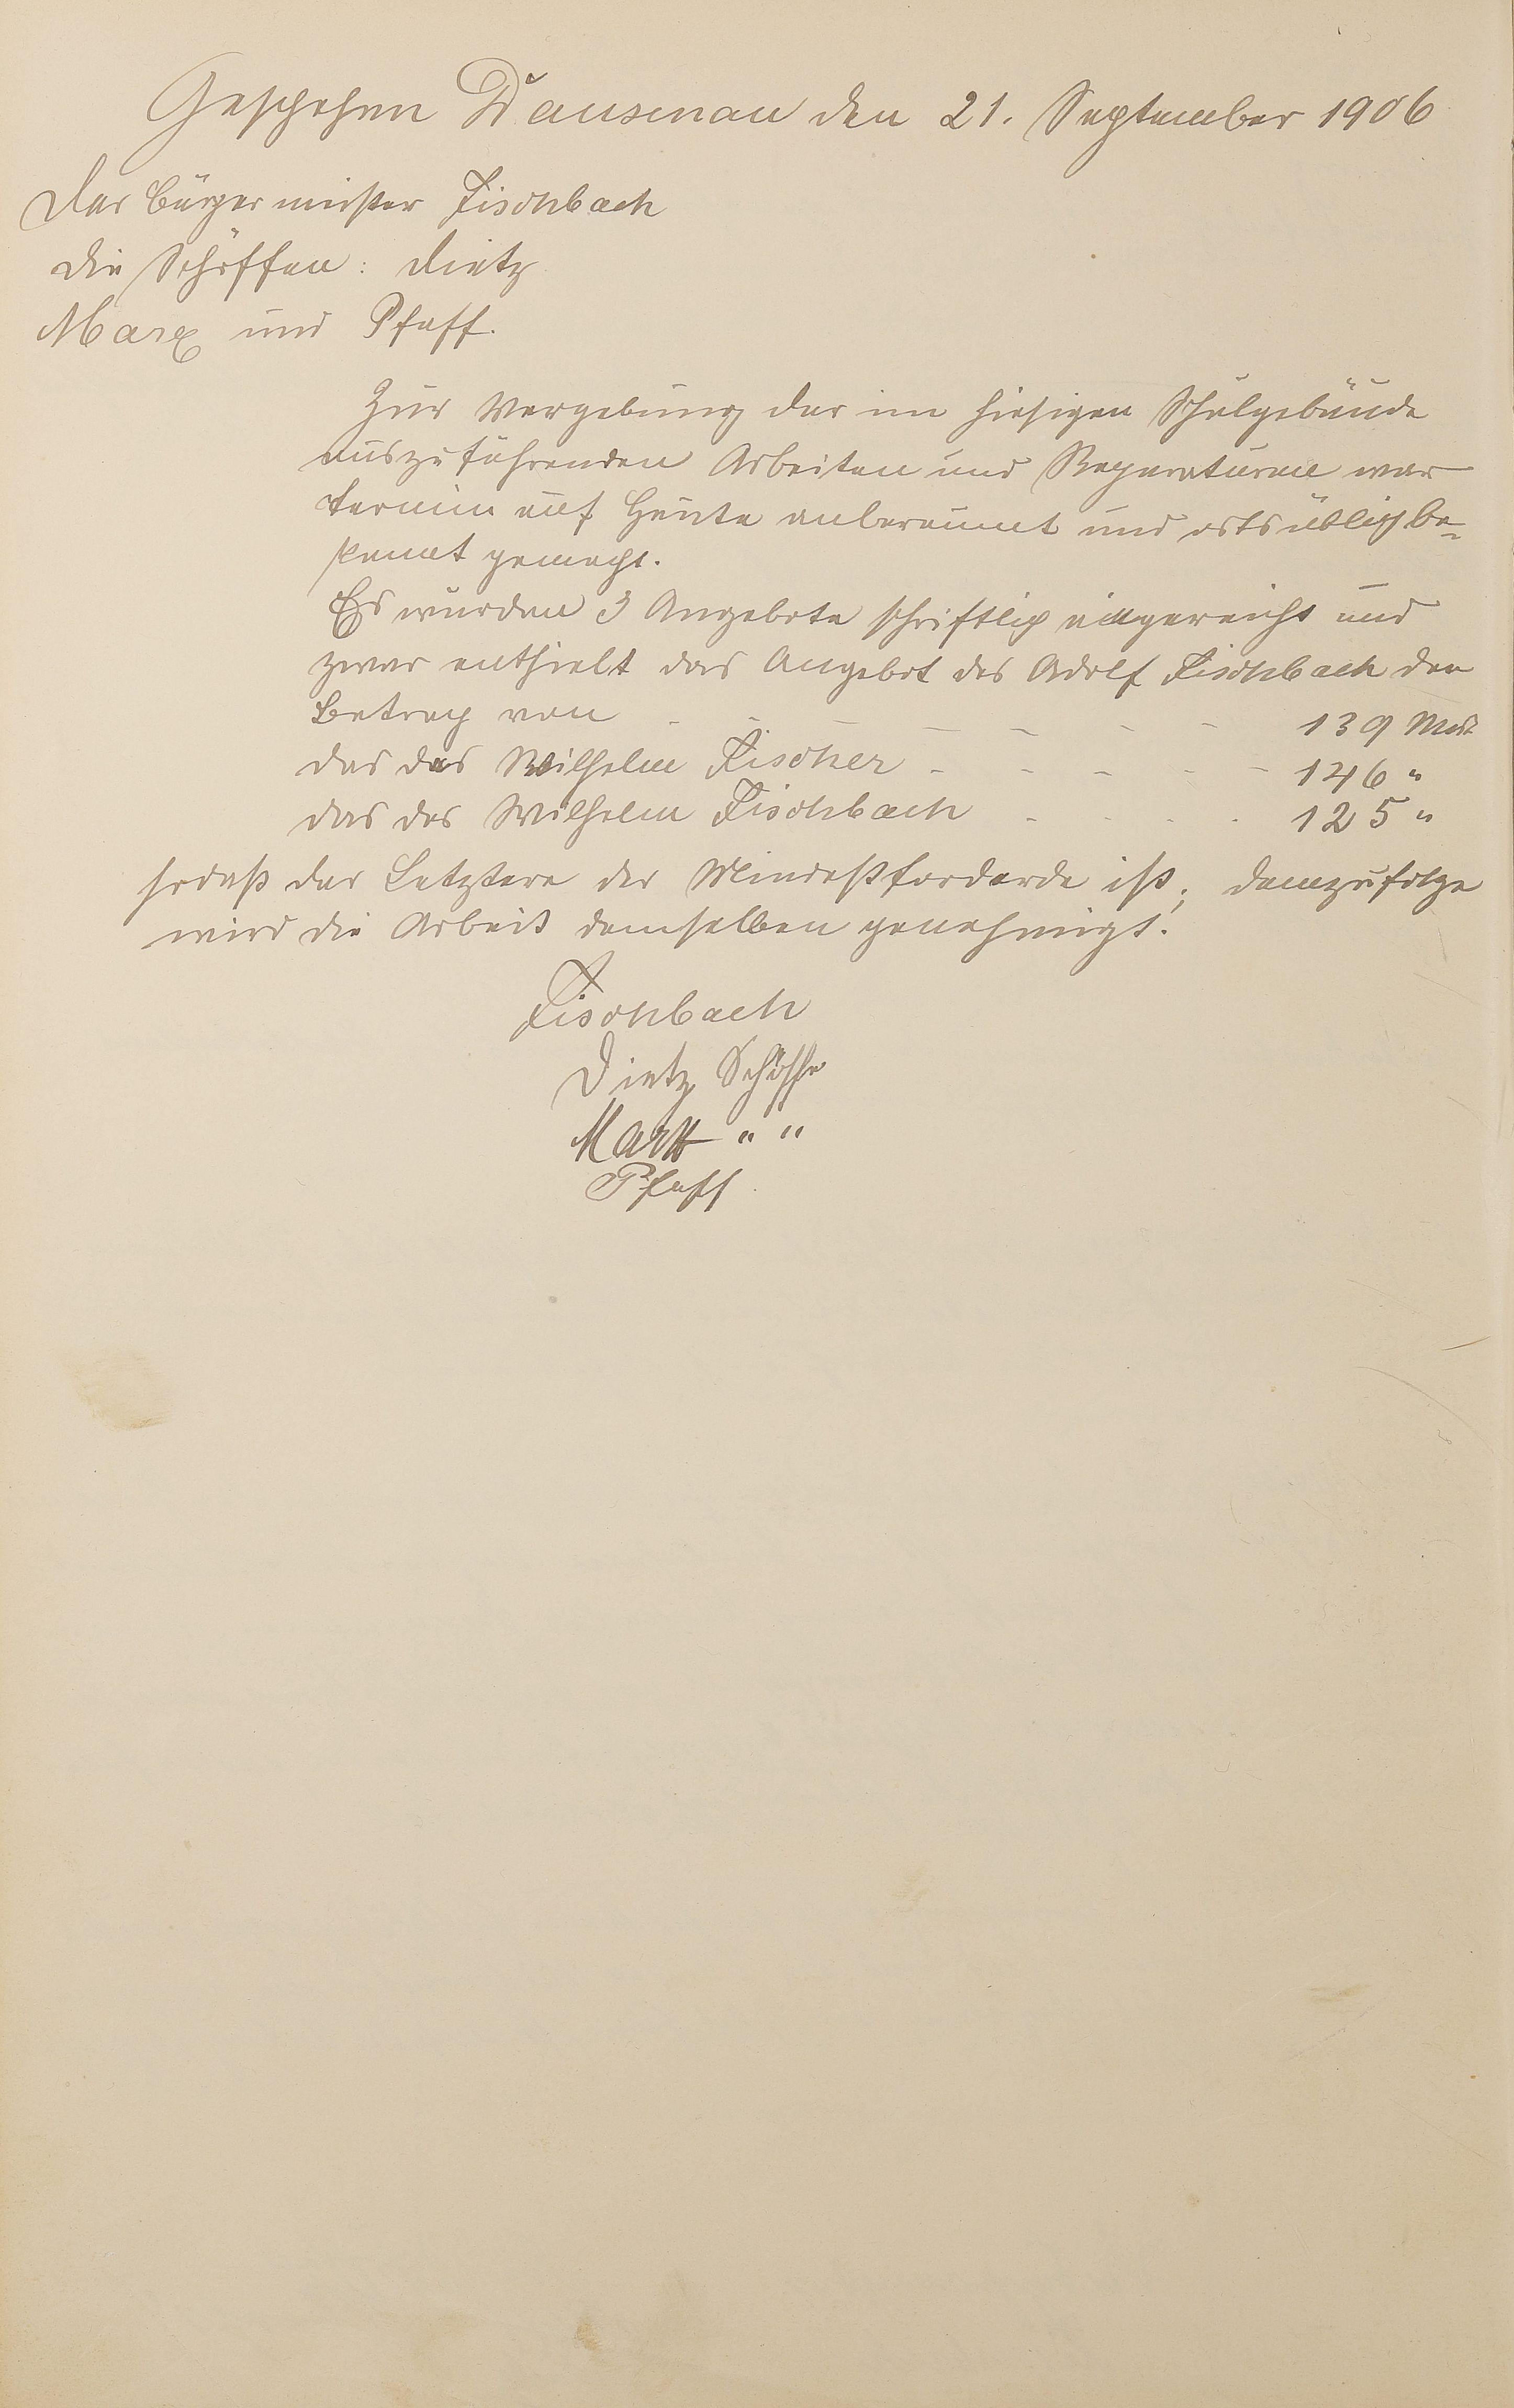 Geschehen Dausenau den 21. September 1906
Der Bürgermeister Fischbach
die Schöffen: Dietz
Marx und Pfaff.
Zur Vergebung der im hiesigen Schulgebäude
auszuführenden Arbeiten und Reparaturen war
Termin auf Heute anberaumt und ortsüblich be-
kannt gemacht.
Es wurden 3 Angebote schriftlich eingereicht und
zwar enthielt das Angebot des Adolf Fischbach den
Betrag von - - - - - - - 139 Mark
das des Wilhelm Fischer - - - - - 146 "
das des Wilhelm Fischbach - - - - 125 "
sodaß der Letztere der Mindestfordernde ist; demzufolge
wird die Arbeit demselben genehmigt.
Fischbach
Dietz Schöffe
Marx " "
Pfaff